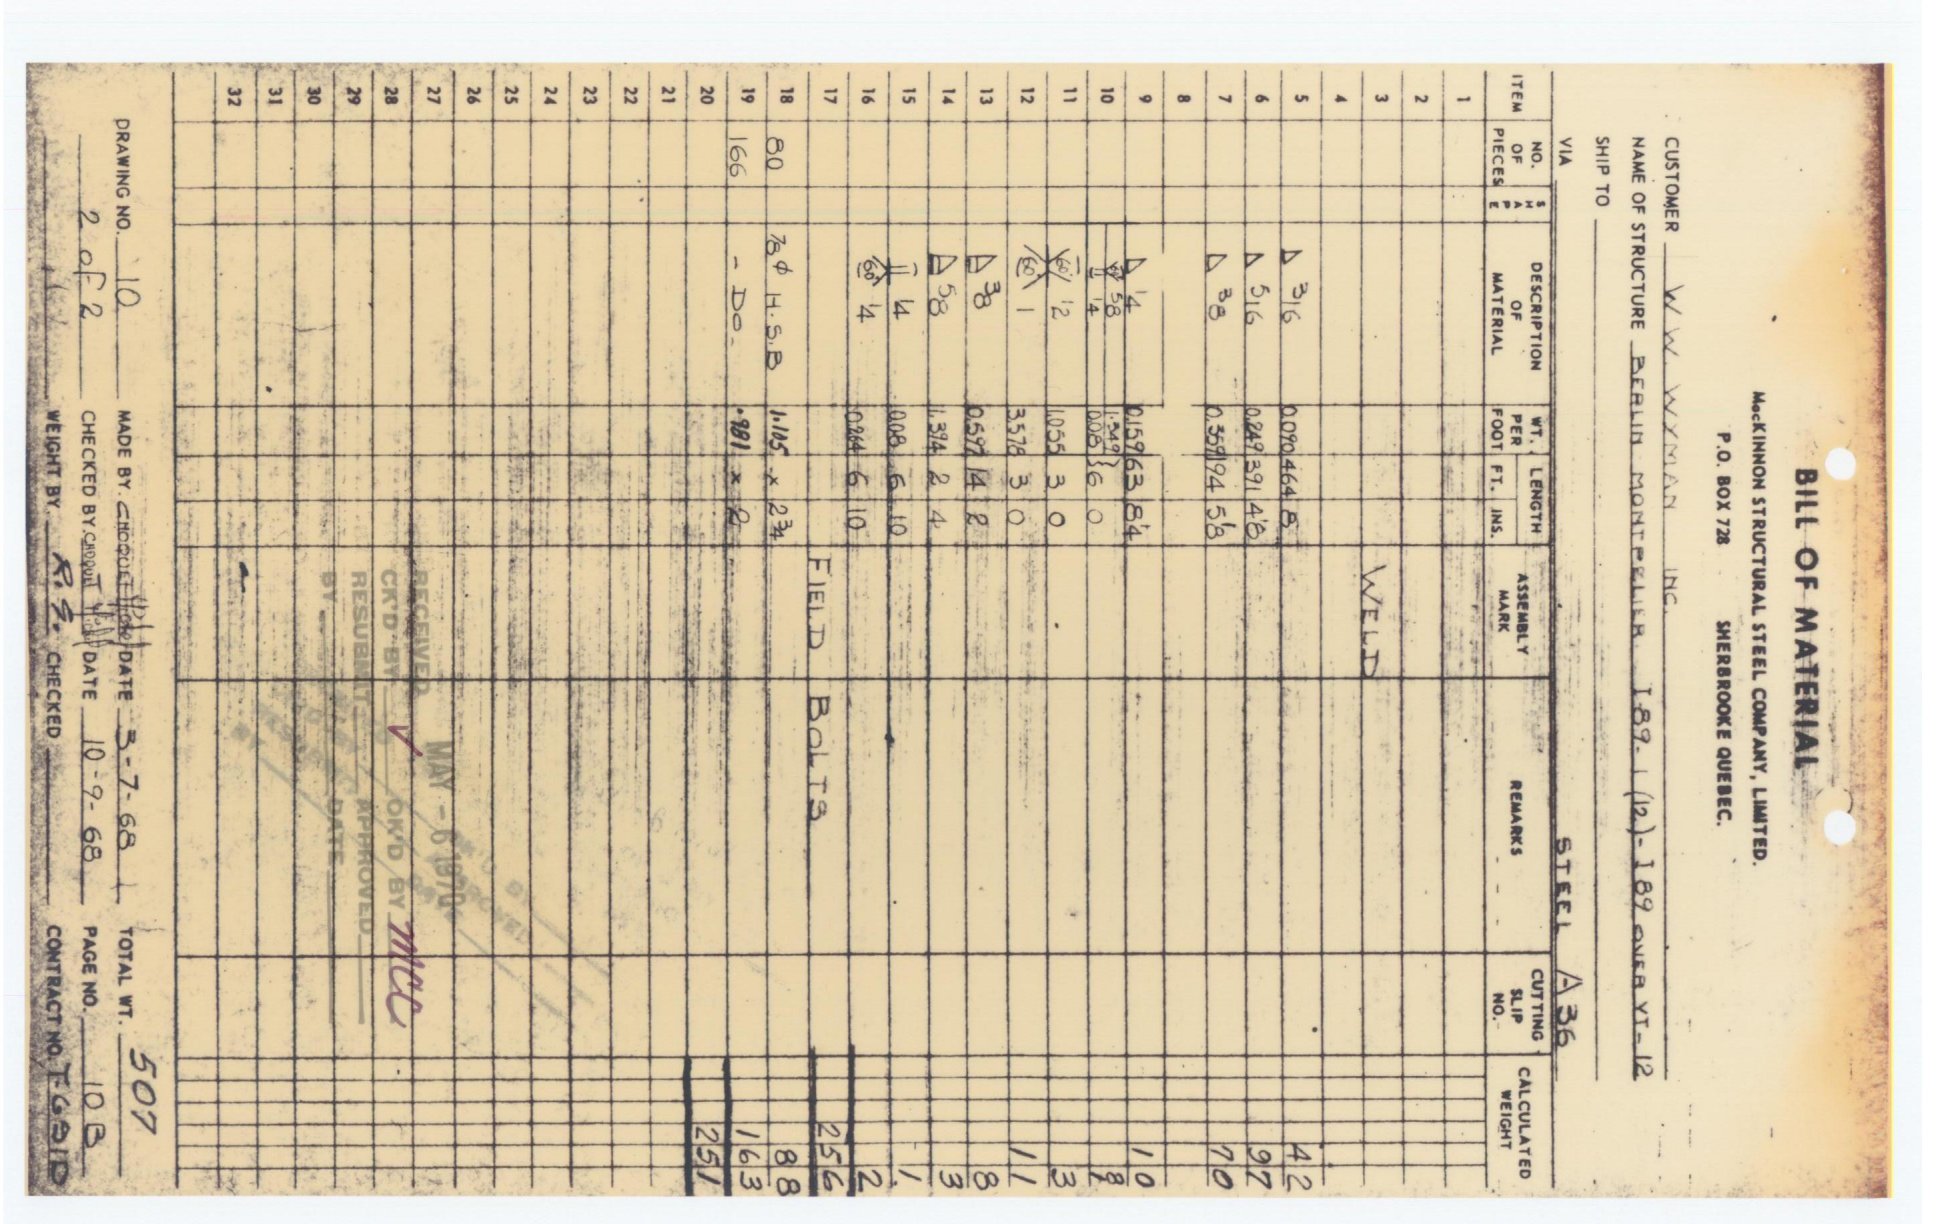 BILL OF MATERIAL
MacKINNON STRUCTURAL STEEL COMPANY, LIMITED.
P.O. BOX 728 SHERBROOKE QUEBEC.
CUSTOMER W. W. WYMAN INC.
NAME OF STRUCTURE BERLIN MONTPELIER I 89-1(12)-I 89 OVER VT-12
SHIP TO
VIA STEEL A36
ITEM NO. OF PIECES SHAPE DESCRIPTION OF MATERIAL WT. PER FOOT LENGTH FT. INS. ASSEMBLY MARK REMARKS CUTTING SLIP NO. CALCULATED WEIGHT
1
2
3 WELD
4
5 3/16 0.090 464 8 42
6 5/16 0.249 391 4 1/8 97
7 3/8 0.359 194 5 1/8 70
8
9 1/4 0.159 63 8 1/4 10
10 60° 5/8 1.349 6 0 8
1/4 0.081
11 60° 1/2 1.055 3 0 3
12 60° 1 3.578 3 0 11
13 3/8 0.597 14 2 8
14 5/8 1.394 2 4 3
15 1/4 0.08 6 10 1
16 60° 1/4 0.264 6 10 2
17 FIELD BOLTS 256
18 80 7/8 φ H.S.B 1.105 x 2 3/4 88
19 166 - DO - .981 x 2 163
20 251
21
22
23
24
25
26
27
28
29
30
31
32
RECEIVED MAY - 6 1970
CK'D BY ✓ OK'D BY MCC
RESUBMIT APPROVED
BY DATE
DRAWING NO. 10 MADE BY. CHOQUETTE DATE 3-7-68 TOTAL WT. 507
2 of 2 CHECKED BY CHOQUETTE DATE 10-9-68 PAGE NO. 10 B
WEIGHT BY R.G. CHECKED CONTRACT NO.